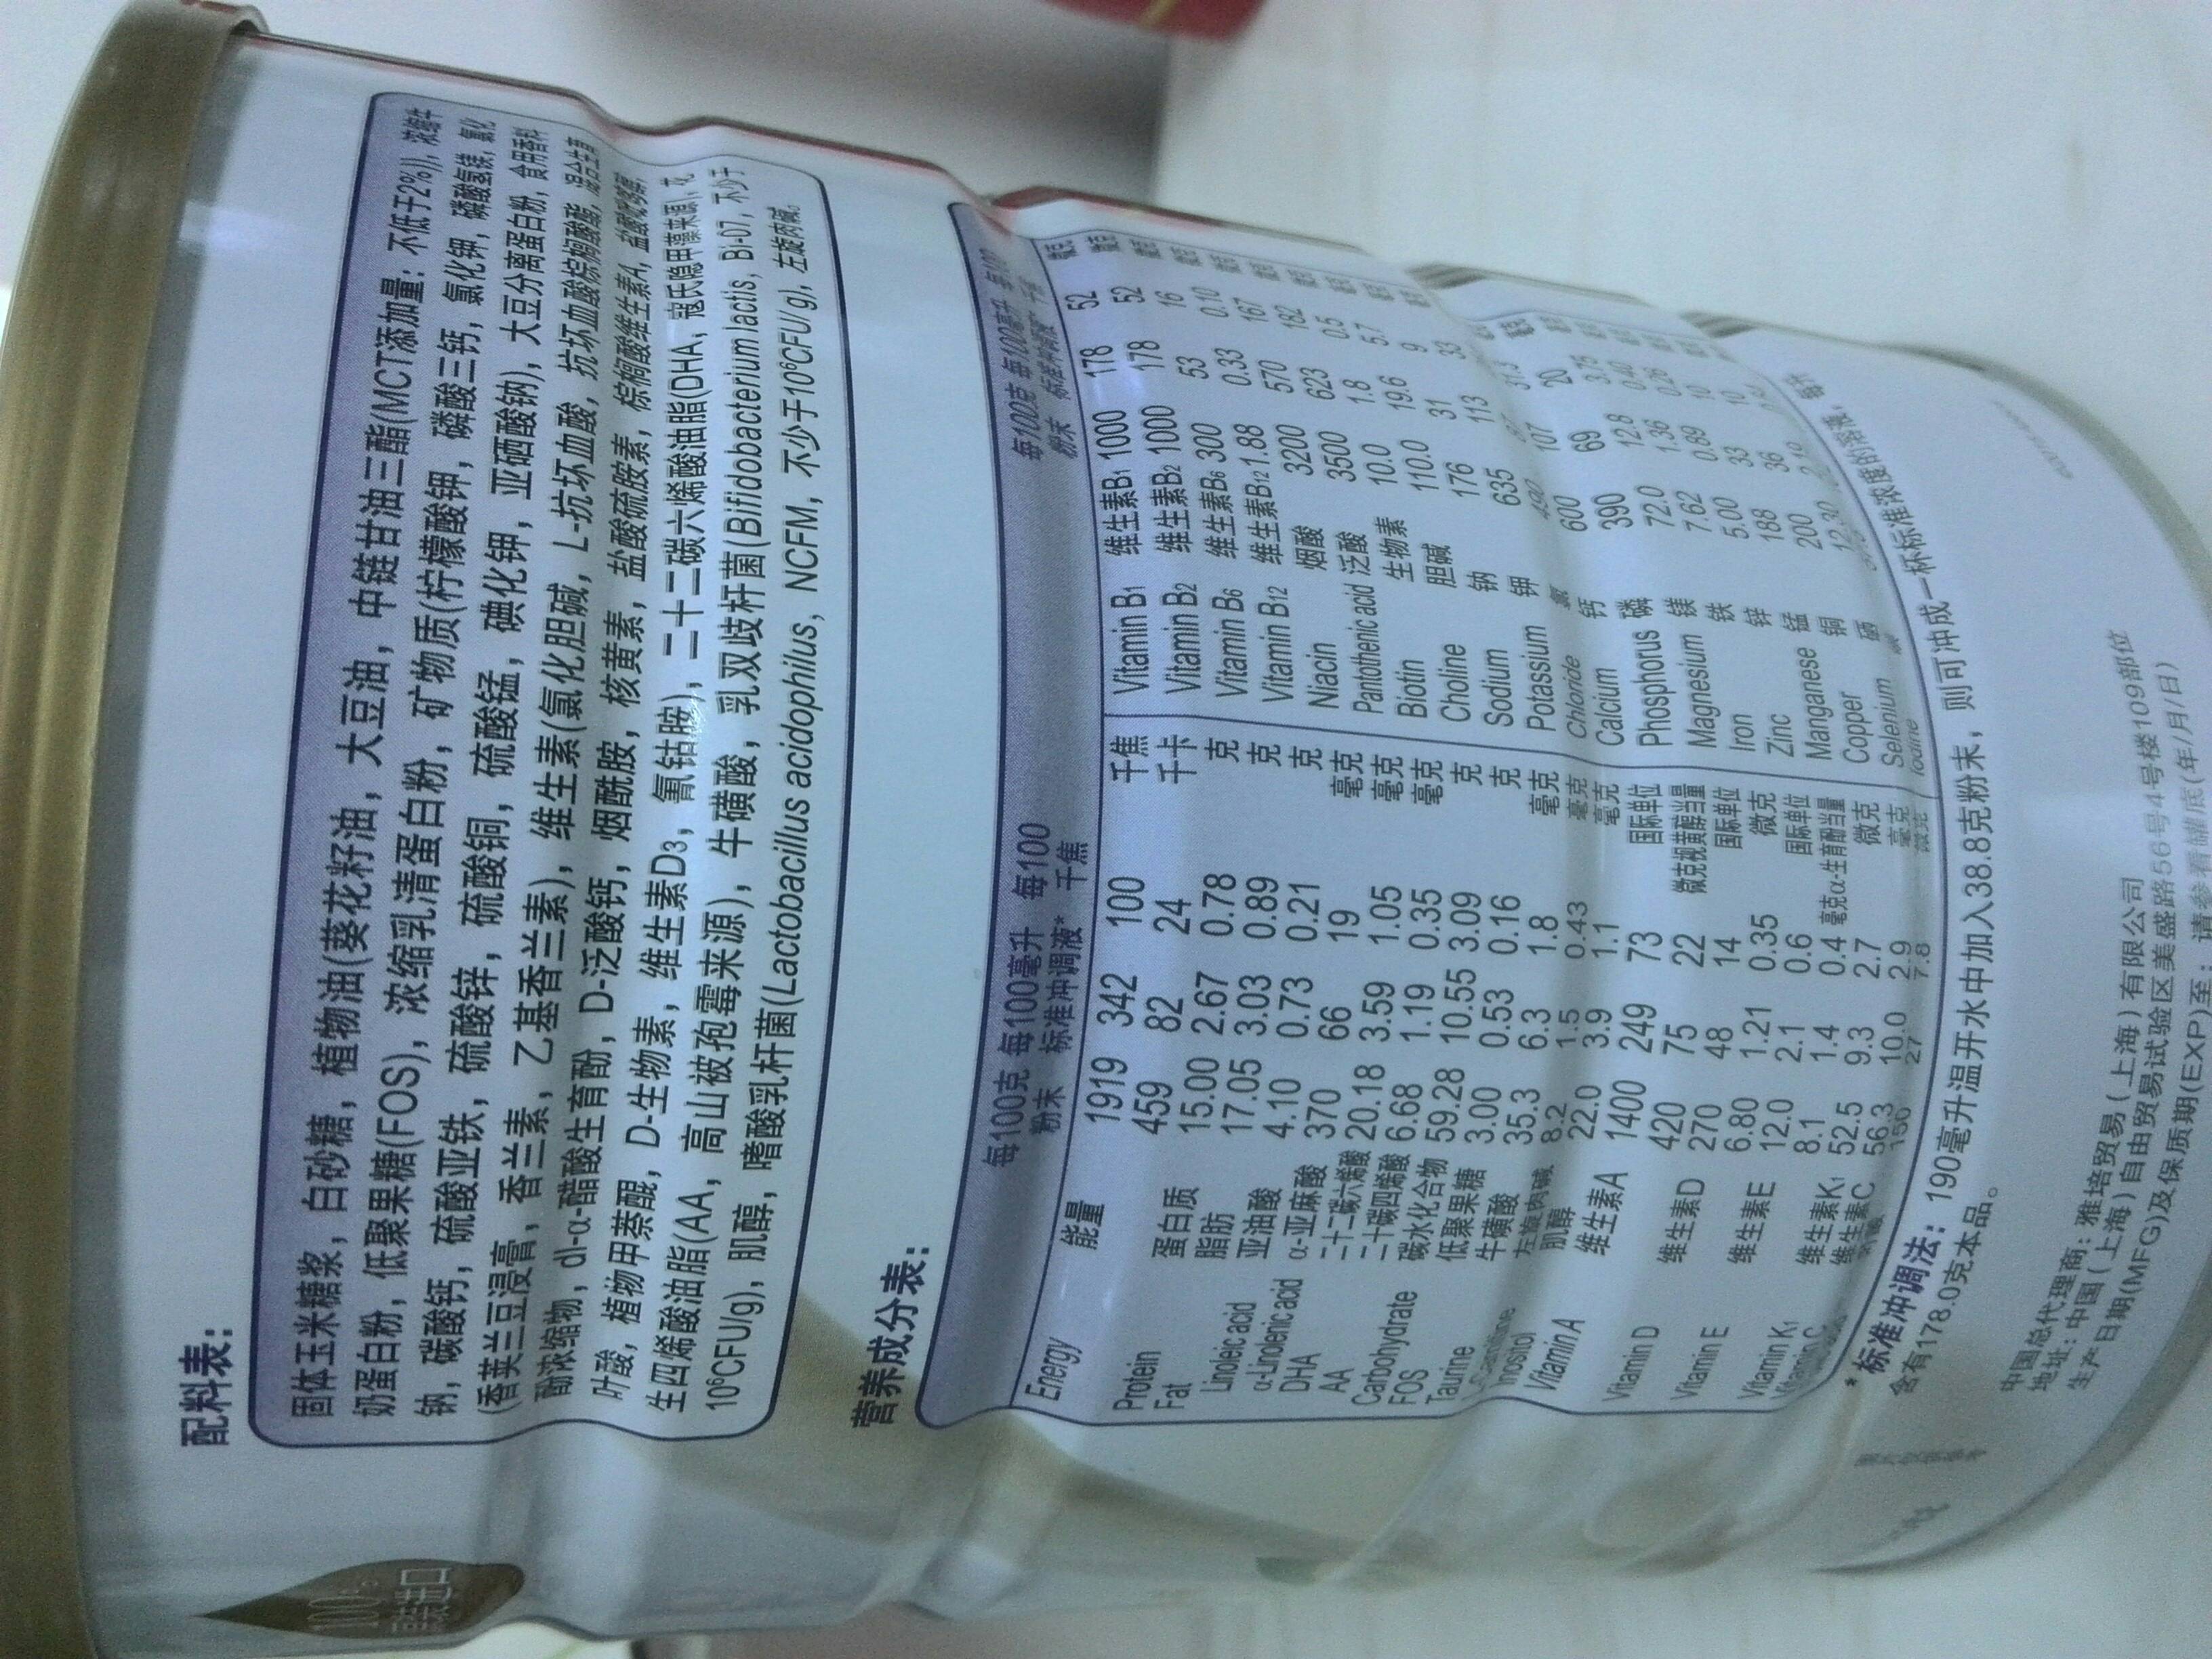 配料表:
固体玉米糖浆，白砂糖，植物油(葵花籽油，大豆油，中链甘油三酯(MCT添加量：不低于2%))，浓缩牛
奶蛋白粉，低聚果糖(FOS)，浓缩乳清蛋白粉，矿物质(柠檬酸钾，磷酸三钙，氯化钾，磷酸氢镁，氯化
钠，碳酸钙，硫酸亚铁，硫酸锌，硫酸铜，硫酸锰，碘化钾，亚硒酸钠)，大豆分离蛋白粉，食用香料
(香荚兰豆浸膏，香兰素，乙基香兰素)，维生素(氯化胆碱，L-抗坏血酸，抗坏血酸棕榈酸酯，混合生育
酚浓缩物，dl-α-醋酸生育酚，D-泛酸钙，烟酰胺，核黄素，盐酸硫胺素，棕榈酸维生素A，
叶酸，植物甲萘醌，D-生物素，维生素D3，氰钴胺)，二十二碳六烯酸油脂(DHA，寇氏隐甲藻来源)，花
生四烯酸油脂(AA，高山被孢霉来源)，牛磺酸，乳双歧杆菌(Bifidobacterium lactis, Bi-07，不少于
10⁶CFU/g)，肌醇，嗜酸乳杆菌(Lactobacillus acidophilus，NCFM，不少于10⁶CFU/g)，左旋肉碱。
营养成分表:
每100克 每100毫升 每100 每100克 每100毫升
粉末 标准冲调液* 千焦 粉末
Energy 能量 1919 342 100 千焦 Vitamin B1 维生素B1 1000 178 52
459 82 24 千卡 Vitamin B2 维生素B2 1000 178 52
Protein 蛋白质 15.00 2.67 0.78 克 Vitamin B6 维生素B6 300 53 16
Fat 脂肪 17.05 3.03 0.89 克 Vitamin B12 维生素B12 1.88 0.33 0.10
Linoleic acid 亚油酸 4.10 0.73 0.21 克 Niacin 烟酸 3200 570 167
α-Linolenic acid α-亚麻酸 370 66 19 毫克 Pantothenic acid 泛酸 3500 623 182
DHA 二十二碳六烯酸 20.18 3.59 1.05 毫克 Biotin 生物素 10.0 1.8 0.5
AA 二十碳四烯酸 6.68 1.19 0.35 毫克 Choline 胆碱 110.0 19.6 5.7
Carbohydrate 碳水化合物 59.28 10.55 3.09 克 Sodium 钠 176 31 9
FOS 低聚果糖 3.00 0.53 0.16 克 Potassium 钾 635 113 33
Taurine 牛磺酸 35.3 6.3 1.8 毫克 Chloride 氯
左旋肉碱 8.2 1.5 0.43 毫克 Calcium 钙 600 107
Inositol 肌醇 22.0 3.9 1.1 毫克 Phosphorus 磷 390 69 20
Vitamin A 维生素A 1400 249 73 国际单位 Magnesium 镁 72.0 12.8 3.75
420 75 22 微克视黄醇当量 Iron 铁 7.62 1.36 0.40
Vitamin D 维生素D 270 48 14 国际单位 Zinc 锌 5.00 0.89 0.26
6.80 1.21 0.35 微克 Manganese 锰 188 33 10
Vitamin E 维生素E 12.0 2.1 0.6 国际单位 Copper 铜 200 36 10
8.1 1.4 0.4 毫克α-生育酚当量 Selenium 硒 12.30
Vitamin K1 维生素K1 52.5 9.3 2.7 微克 Iodine
Vitamin C 维生素C 56.3 10.0 2.9 毫克
150 27 7.8 微克
* 标准冲调法：190毫升温开水中加入38.8克粉末，则可冲成一杯标准浓度的溶液，
含有178.0克本品。
中国总代理商：雅培贸易(上海)有限公司
地址：中国(上海)自由贸易试验区美盛路56号4号楼109部位
生产日期(MFG)及保质期(EXP)至：请参看罐底(年/月/日)
100%
原装进口